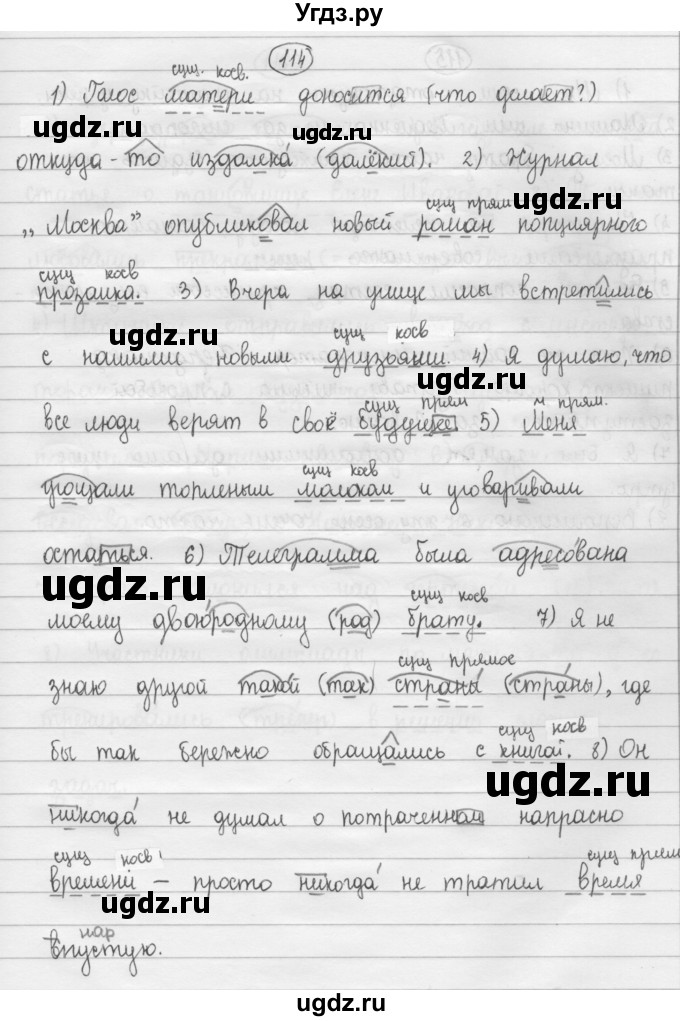 Угдз.ру
114
сущ. косв.
1) Голос матери доносится (что делает?)
откуда-то издалека (далёкий). 2) Журнал
сущ прям
„Москва" опубликовал новый роман популярного
сущ косв
прозаика. 3) Вчера на улице мы встретились
сущ косв
с нашими новыми друзьями. 4) Я думаю, что
сущ прям м. прям.
все люди верят в своё будущее 5) Меня
сущ косв
угощали топленым молоком и уговаривали
остаться. 6) Телеграмма была адресована
сущ косв
моему двоюродному (род) брату. 7) Я не
сущ прямое
знаю другой такой (так) страны (страны), где
сущ косв
бы так бережно обращались с книгой. 8) Он
никогда не думал о потраченном напрасно
сущ косв сущ прям
времени – просто никогда не тратил время
нар
впустую.
ugdz.ru
ugdz.ru
ugdz.ru
ugdz.ru
ugdz.ru
ugdz.ru
ugdz.ru
ugdz.ru
ugdz.ru
ugdz.ru
ugdz.ru